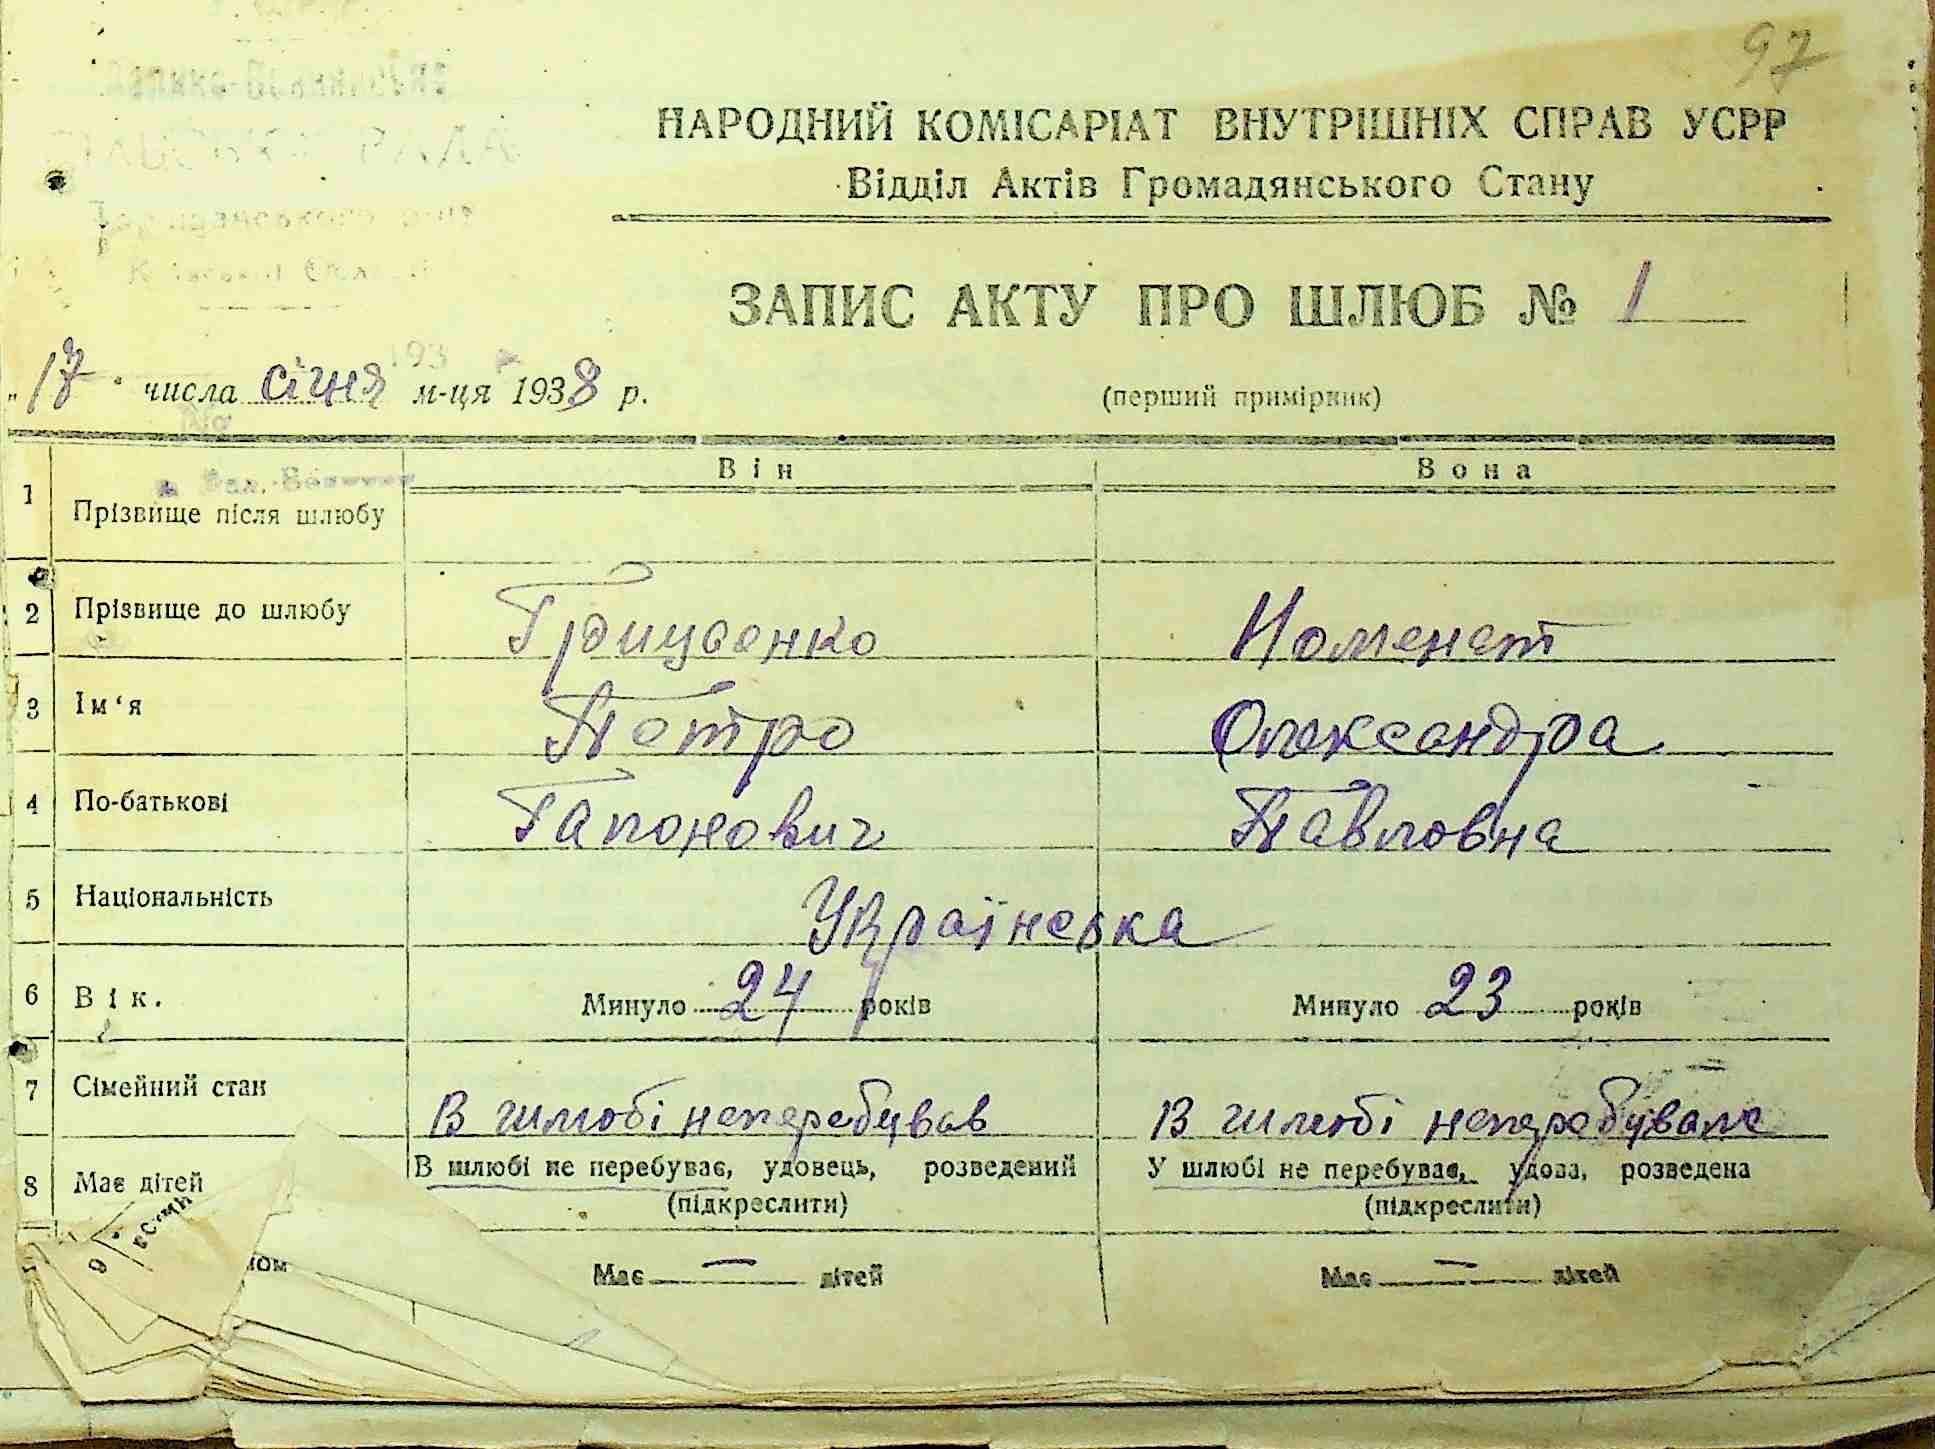 97
НАРОДНИЙ КОМІСАРІАТ ВНУТРІШНІХ СПРАВ УСРР
Відділ Актів Громадянського Стану
ЗАПИС АКТУ ПРО ШЛЮБ № 1
193
„17" числа січня м-ця 1938 р.
(перший примірник)
№
Він Вона
1 Прізвище після шлюбу
2 Прізвище до шлюбу Грицаенко Номенат
3 Ім‘я Петро Олександра
4 По-батькові Гапонович Павловна
5 Національність Українська
6 Вік. Минуло 24 років Минуло 23 років
7 Сімейний стан В шлюбі неперебував В шлюбі неперебувала
В шлюбі не перебуває, удовець, розведений У шлюбі не перебуває, удова, розведена
(підкреслити) (підкреслити)
8 Має дітей
Має — дітей Має — дітей
9